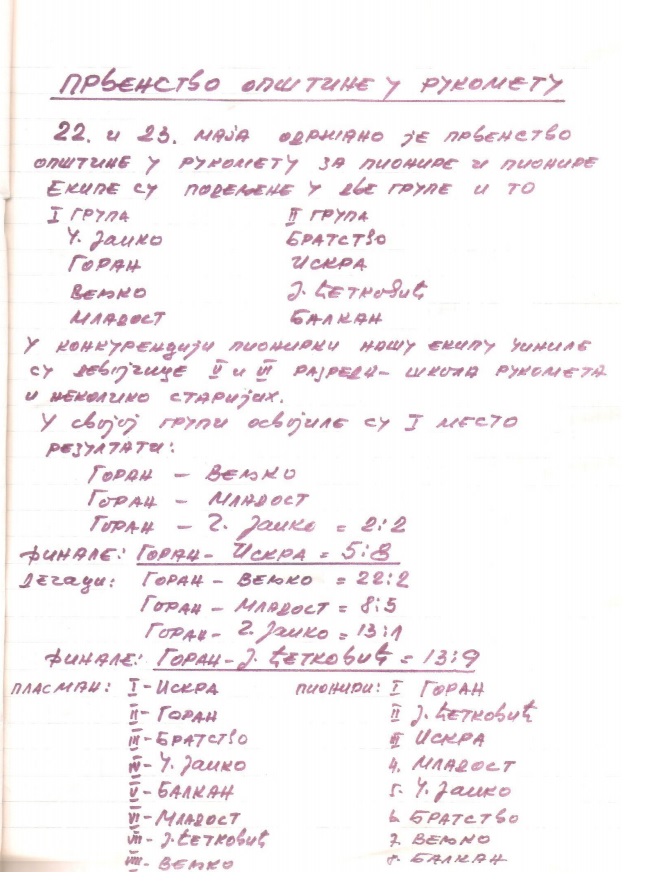 ПРВЕНСТВО ОПШТИНЕ У РУКОМЕТУ
22. и 23. МАЈА ОДРЖАНО ЈЕ ПРВЕНСТВО
ОПШТИНЕ У РУКОМЕТУ ЗА ПИОНИРЕ И ПИОНИРЕ
ЕКИПЕ СУ ПОДЕЉЕНЕ У ДВЕ ГРУПЕ И ТО
I ГРУПА II ГРУПА
Ч. Јанко БРАТСТВО
ГОРАН ИСКРА
ВЕЉКО Ј. Ћетковић
МЛАДОСТ БАЛКАН
У КОНКУРЕНЦИЈИ ПИОНИРКИ НАШУ ЕКИПУ ЧИНИЛЕ
СУ ДЕВОЈЧИЦЕ V И VI РАЗРЕДА - ШКОЛА РУКОМЕТА
И НЕКОЛИКО СТАРИЈИХ.
У СВОЈОЈ ГРУПИ ОСВОЈИЛЕ СУ I МЕСТО
РЕЗУЛТАТИ:
ГОРАН - ВЕЉКО
ГОРАН - МЛАДОСТ
ГОРАН - Ч. Јанко = 2:2
ФИНАЛЕ: ГОРАН - ИСКРА = 5:8
Дечаци: ГОРАН - ВЕЉКО = 22:2
ГОРАН - МЛАДОСТ = 8:5
ГОРАН - Ч. Јанко = 13:1
ФИНАЛЕ: ГОРАН - Ј. ЋЕТКОВИЋ = 13:9
ПЛАСМАН: I - ИСКРА ПИОНИРИ: I ГОРАН
II - ГОРАН II Ј. ЋЕТКОВИЋ
III - БРАТСТВО III ИСКРА
IV - Ч. Јанко 4. МЛАДОСТ
V - БАЛКАН 5. Ч. Јанко
VI - МЛАДОСТ 6. БРАТСТВО
VII - Ј. ЋЕТКОВИЋ 7. ВЕЉКО
VIII - ВЕЉКО 8. БАЛКАН